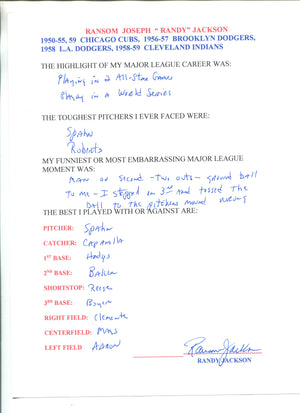 RANSOM JOSEPH "RANDY" JACKSON
1950-55, 59 CHICAGO CUBS, 1956-57 BROOKLYN DODGERS,
1958 L.A. DODGERS, 1958-59 CLEVELAND INDIANS
THE HIGHLIGHT OF MY MAJOR LEAGUE CAREER WAS:
Playing in 2 All-Star Games
Playing in a World Series
THE TOUGHEST PITCHERS I EVER FACED WERE:
Spahn
Roberts
MY FUNNIEST OR MOST EMBARRASSING MAJOR LEAGUE
MOMENT WAS:
Man on second - Two outs - ground ball
to me - I stepped on 3rd and tossed the
ball to the pitchers mound
THE BEST I PLAYED WITH OR AGAINST ARE:
PITCHER: Spahn
CATCHER: Campanella
1ST BASE: Hodges
2ND BASE: Baker
SHORTSTOP: Reese
3RD BASE: Boyer
RIGHT FIELD: Clemente
CENTERFIELD: Mays
LEFT FIELD Aaron
Ransom Jackson
RANDY JACKSON